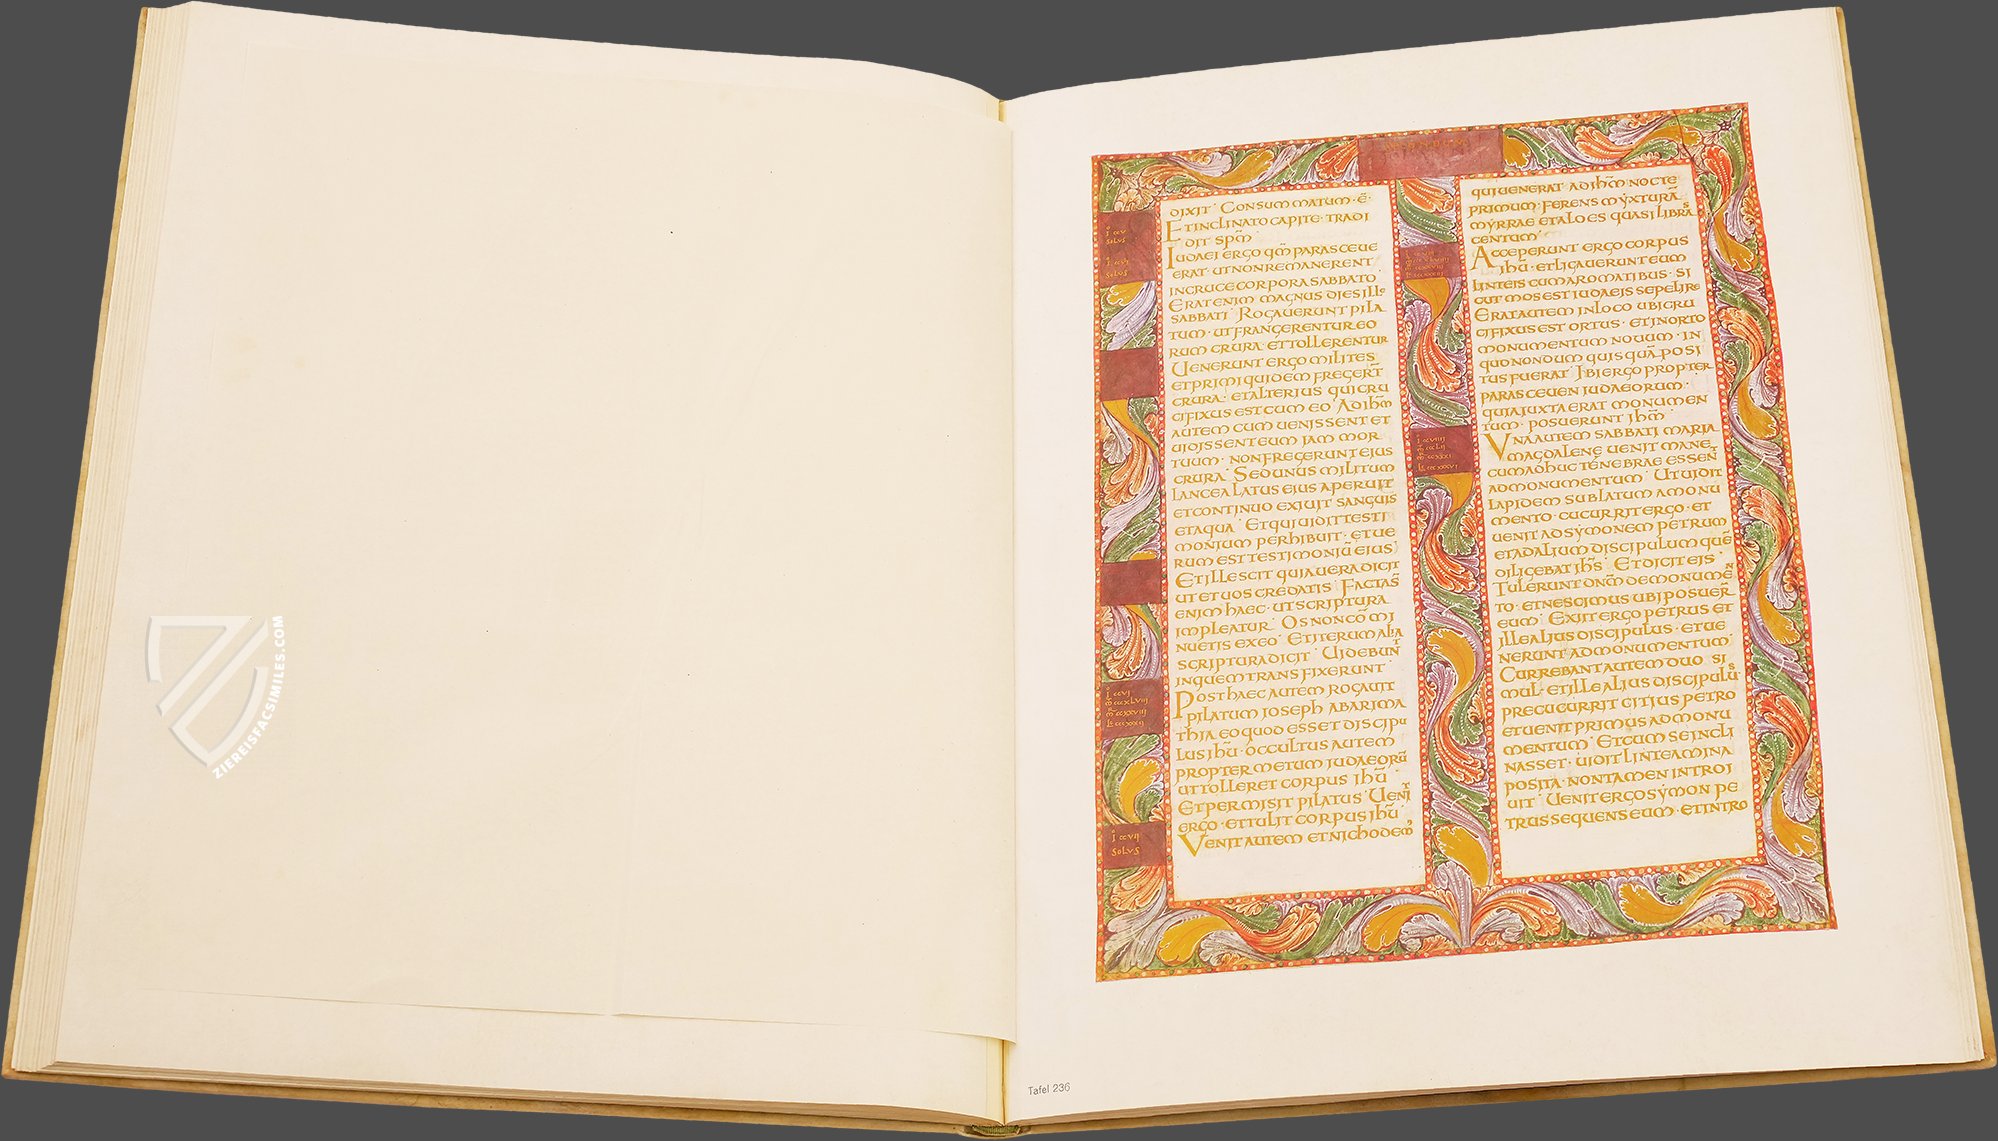 DIXIT · CONSUMMATUM · ē ·
ETINCLINATO CAPITE · TRADI
DIT SPM̄
IUDAEI ERGO QM̄ PARASCEUE
ERAT · UT NON REMANERENT
IN CRUCE CORPORA SABBATO ·
ERAT ENIM MAGNUS DIES ILLE
SABBATI · ROGAUERUNT PILA
TUM · UT FRANGERENTUR EO
RUM CRURA · ET TOLLERENTUR
UENERUNT ERGO MILITES
ET PRIMI QUIDEM FREGERT̄
CRURA · ET ALTERIUS QUI CRU
CIFIXUS EST CUM EO · AD IHM̄
AUTEM CUM UENISSENT ET
UIDISSENT EUM IAM MOR
TUUM · NON FREGERUNT EIUS
CRURA · SED UNUS MILITUM
LANCEA LATUS EIUS APERUIT
ET CONTINUO EXIUIT SANGUIS
ET AQUA · ET QUI UIDIT TESTI
MONIUM PERHIBUIT · ET UE
RUM EST TESTIMONIŪ EIUS
ET ILLE SCIT QUIA UERA DICIT
UT ET UOS CREDATIS · FACTA S̄
ENIM HAEC · UT SCRIPTURA
IMPLEATUR · OS NON CŌMI
NUETIS EX EO · ET ITERUM ALIA
SCRIPTURA DICIT · UIDEBUNT
IN QUEM TRANSFIXERUNT
POST HAEC AUTEM ROGAUIT
PILATUM IOSEPH ABARIMA
THIA · EO QUOD ESSET DISCIPU
LUS IHŪ · OCCULTUS AUTEM
PROPTER METUM IUDAEORŪ
UT TOLLERET CORPUS IHŪ
ET PERMISIT PILATUS · UENIT
ERGO · ET TULIT CORPUS IHŪ
VENIT AUTEM ET NICHODEM'
QUI UENERAT AD IHM̄ NOCTE
PRIMUM · FERENS MYXTURĀ
MYRRAE ET ALOES QUASI LIBRAS
CENTUM ·
ACCEPERUNT ERGO CORPUS
IHŪ · ET LIGAUERUNT EUM
LINTEIS CUM AROMATIBUS · SI
CUT MOS EST IUDAEIS SEPELIRE
ERAT AUTEM IN LOCO UBI CRU
CIFIXUS EST ORTUS · ET IN ORTO
MONUMENTUM NOUUM · IN
QUO NONDUM QUISQUĀ POSI
TUS FUERAT · IBI ERGO PROPTER
PARASCEUEN IUDAEORUM ·
QUIA IUXTA ERAT MONUMEN
TUM · POSUERUNT IHM̄ ·
VNA AUTEM SABBATI MARIA
MAGDALENE UENIT MANE
CUM ADHUC TENEBRAE ESSENT
AD MONUMENTUM · UT UIDIT
LAPIDEM SUBLATUM A MONU
MENTO · CUCURRIT ERGO · ET
UENIT AD SYMONEM PETRUM
ET AD ALIUM DISCIPULUM QUĒ
DILIGEBAT IHS̄ · ET DICIT EIS
TULERUNT DNM̄ DE MONUMEN
TO · ET NESCIMUS UBI POSUER̄
EUM · EXIIT ERGO PETRUS ET
ILLE ALIUS DISCIPULUS · ET UE
NERUNT AD MONUMENTUM ·
CURREBANT AUTEM DUO SI
MUL · ET ILLE ALIUS DISCIPULUS
PRECUCURRIT CITIUS PETRO
ET UENIT PRIMUS AD MONU
MENTUM · ET CUM SE INCLI
NASSET · UIDIT LINTEAMINA
POSITA · NON TAMEN INTROI
UIT · UENIT ERGO SYMON PE
TRUS SEQUENS EUM · ET INTRO
SOLUS
SOLUS
SOLUS
Tafel 236
ZIEREISFACSIMILES.COM